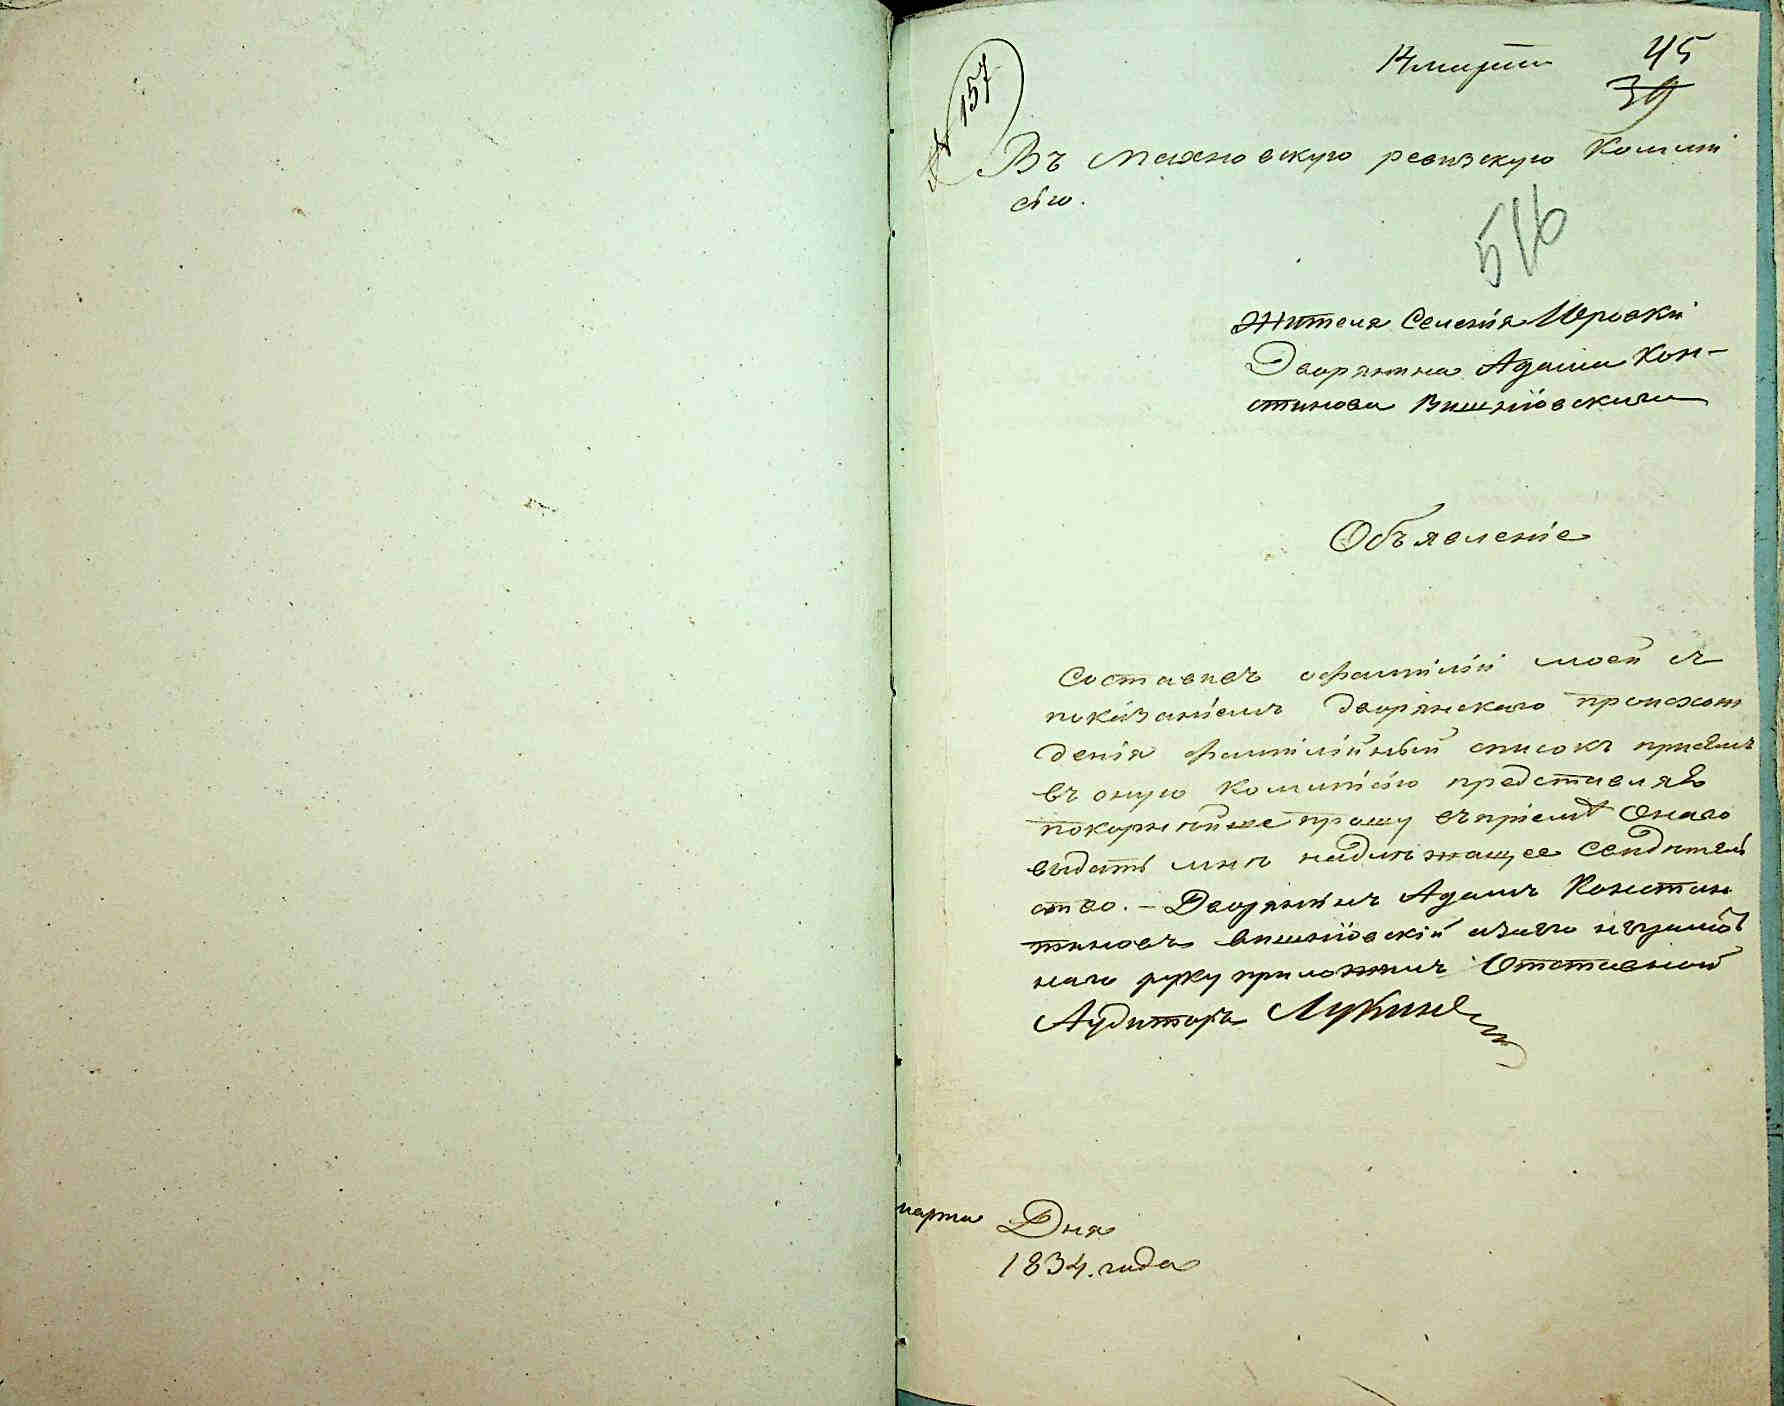 14 марта 45
39
№ 157
Въ Махновскую ревизскую Коммі
сію.
516
Жителя Селенія Юровки
Дворянина Адама Кон-
стинова Вишніовскаго
Объявленіе
Составивъ о фамиліи моей съ
показаніемъ дворянскаго происхож
денія фамилійный списокъ присемъ
въ оную Коммисію представляю
покорнейше прошу въ пріемѣ Онаго
выдать мнѣ надлѣжащее Свидѣтель
ство. - Дворянинъ Адамъ Констан
тиновъ Вишніовскій а за его неграмот
наго руку приложилъ Отставной
Аудиторъ Лукинъ
марта Дня
1834. года